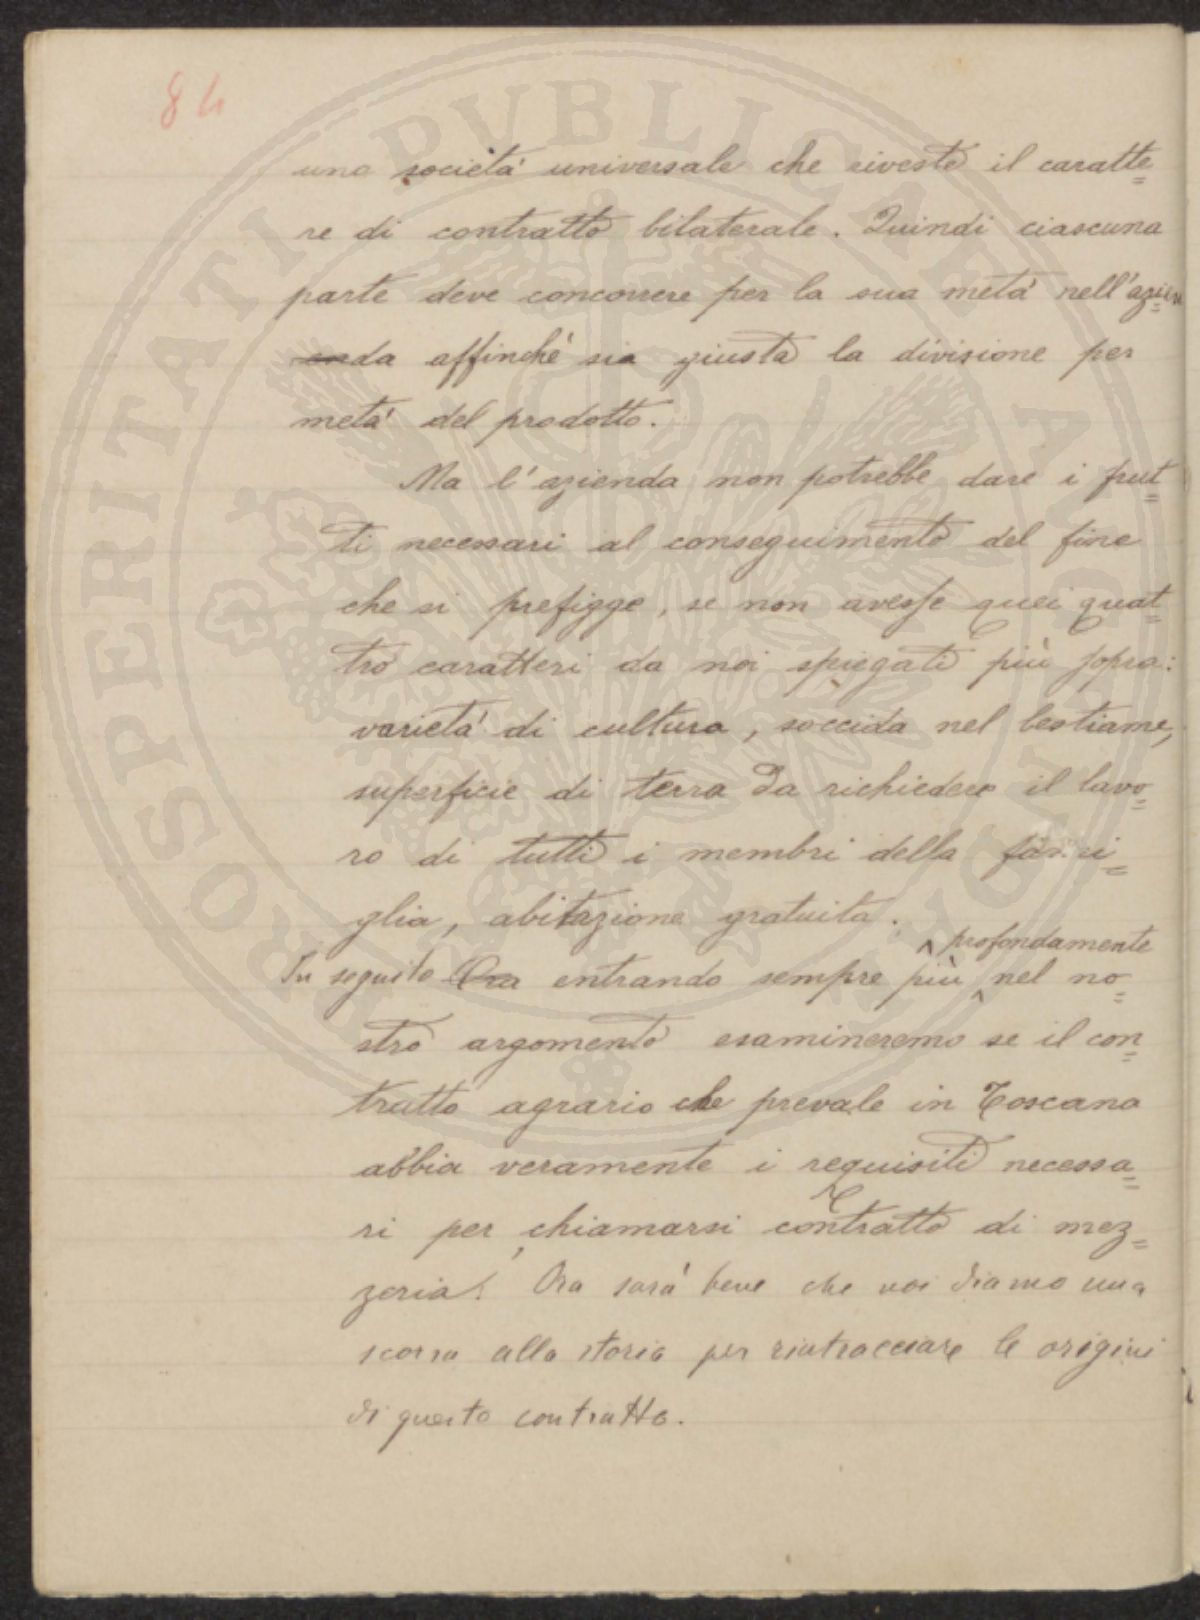 84
una società universale che riveste il caratte=
re di contratto bilaterale. Quindi ciascuna
parte deve concorrere per la sua metà nell'azien=
da affinchè sia giusta la divisione per
metà del prodotto.
Ma l'azienda non potrebbe dare i frut=
ti necessari al conseguimento del fine
che si prefigge, se non avesse quei quat=
tro caratteri da noi spiegati più sopra:
varietà di cultura, soccida nel bestiame,
superficie di terra da richiedere il lavo=
ro di tutti i membri della fami=
glia, abitazione gratuita.
In seguito Ora entrando sempre più profondamente nel no=
stro argomento esamineremo se il con=
tratto agrario che prevale in Toscana
abbia veramente i requisiti necessa=
ri per chiamarsi contratto di mez=
zeria! Ora sarà bene che noi diamo una
scorsa alla storia per rintracciare le origini
di questo contratto.
PROSPERITATI PUBLICAE AUGENDAE